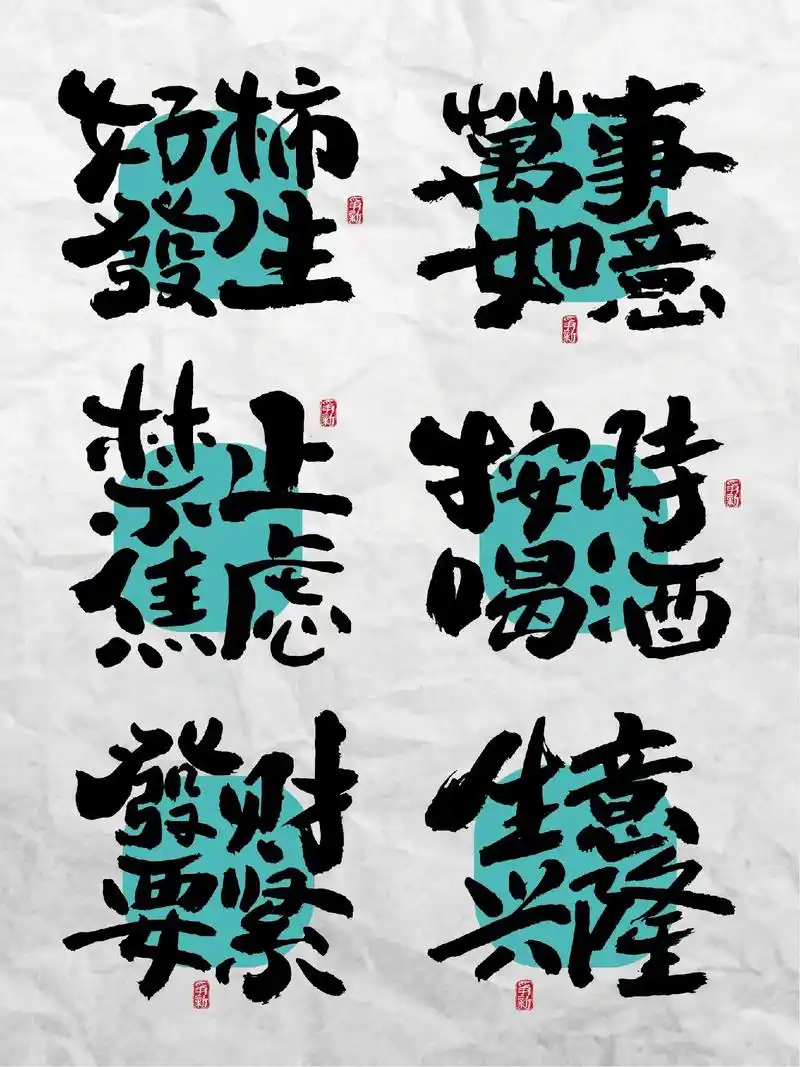 好柿
發生
萬事
如意
禁止
焦虑
按時
喝酒
發财
要紧
生意
兴隆